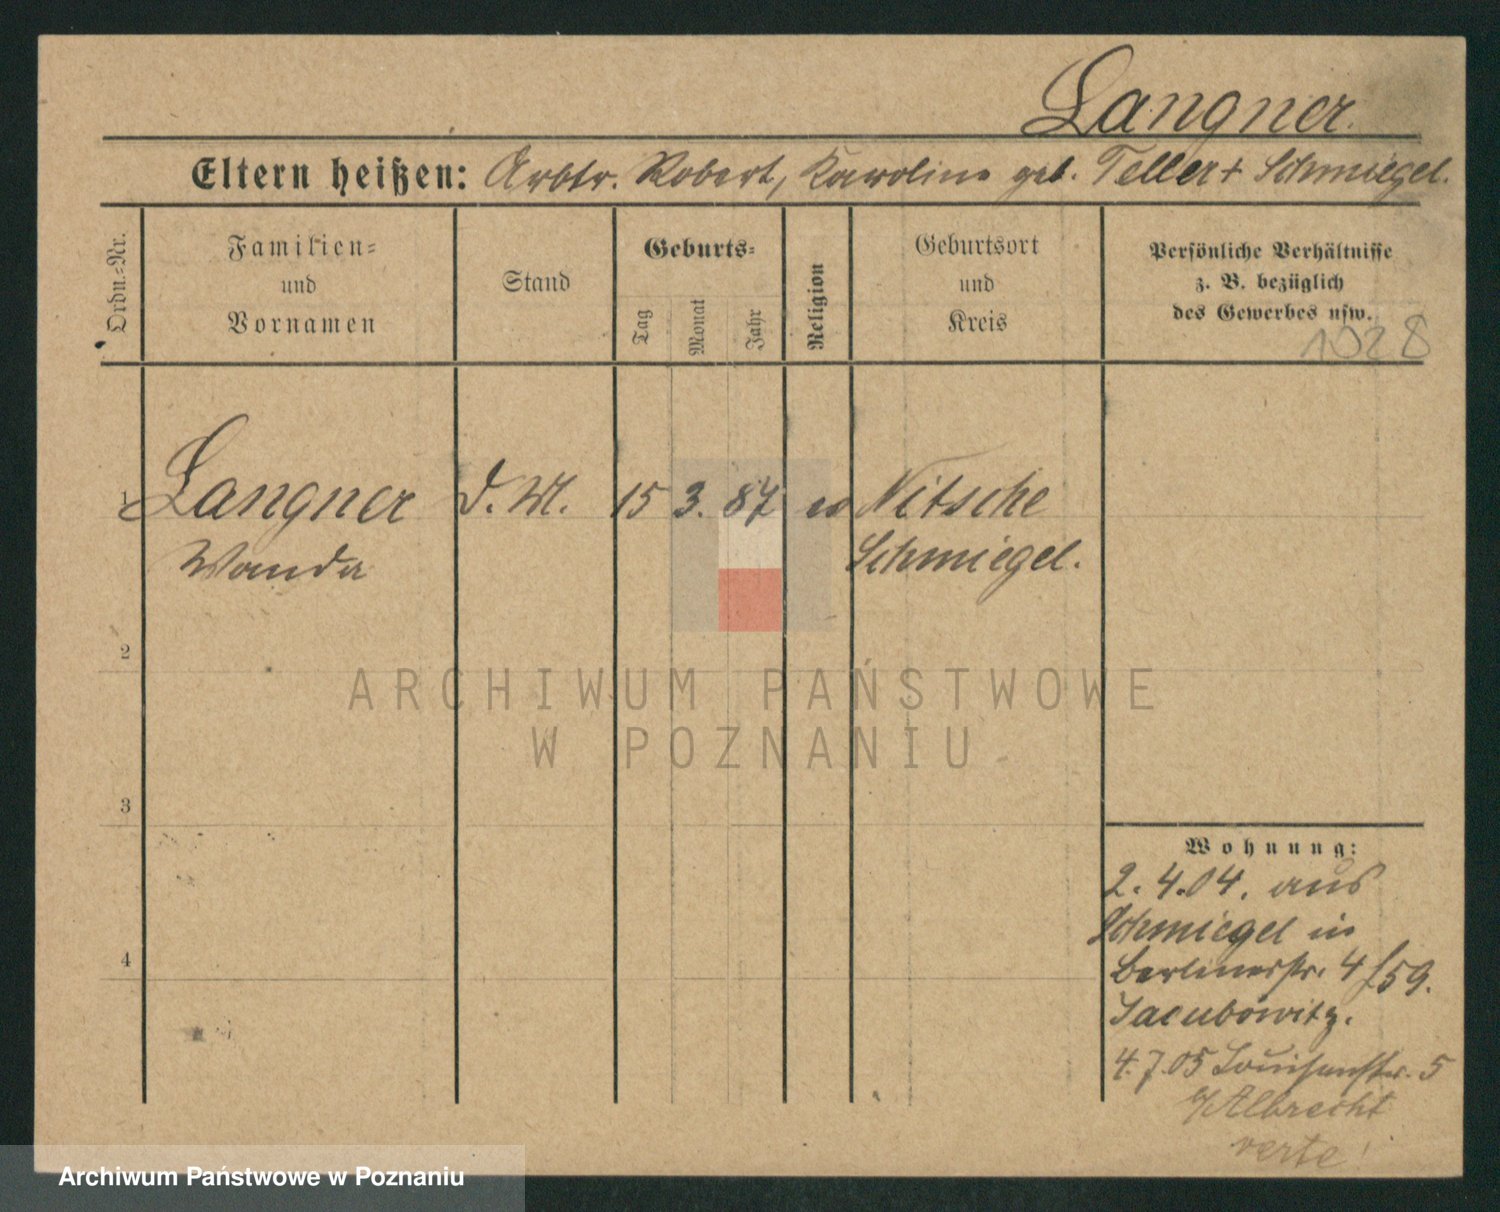 Langner.
Eltern heißen: Arbtr. Robert, Karoline geb. Teller + Schmiegel.
Ordn.-Nr.
Familien-
und
Vornamen
Stand
Geburts-
Tag
Monat
Jahr
Religion
Geburtsort
und
Kreis
Persönliche Verhältnisse
z. B. bezüglich
des Gewerbes usw.
1028
1 Langner D. M. 15 3. 87 ev Nitsche
Wanda Schmiegel.
2
ARCHIWUM PAŃSTWOWE
W POZNANIU
3
Wohnung:
2. 4. 04. aus
Schmiegel in
Berlinerstr. 4 59.
Jacubowitz.
4
4. 7. 05 Louisenstr. 5
Albrecht
verte!
Archiwum Państwowe w Poznaniu